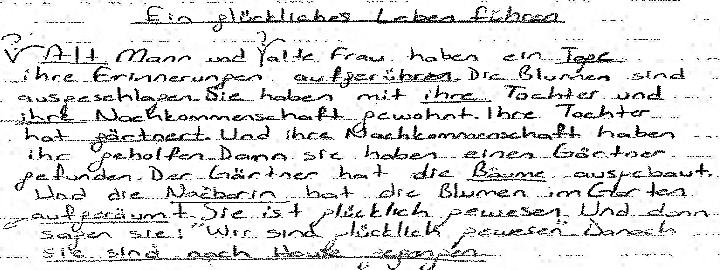 Ein glückliches Leben führen
? ?
V Alt Mann und V alte Frau haben ein Tage
ihre Erinnerungen aufgerühren. Die Blumen sind
ausgeschlagen. Sie haben mit ihre Tochter und
ihre Nachkommenschaft gewohnt. Ihre Tochter
hat gärtnert. Und ihre Nachkommenschaft haben
ihr geholfen. Dann sie haben einen Gärtner
gefunden. Der Gärtner hat die Bäume ausgebaut.
Und die Nacberin hat die Blumen im Garten
aufgeräumt. Sie ist glücklich gewesen. Und dann
sagen sie: "Wir sind glücklich gewesen. Danach
sie sind nach Hause gegangen.